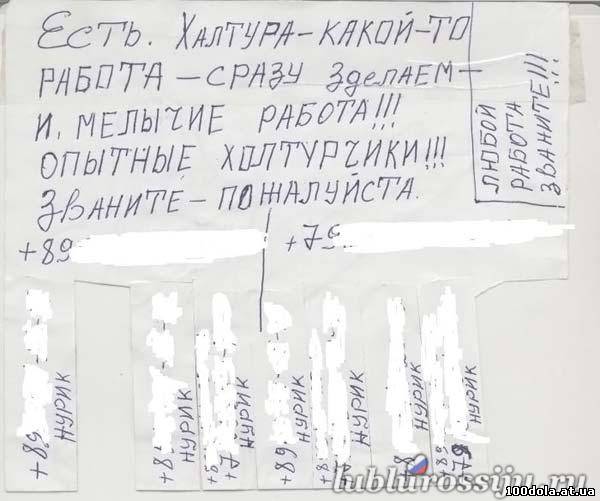 Есть. Халтура-какой-то
работа-сразу зделаем-
и, мелычие работа!!!
опытные холтурчики!!!
Званите-пожалуйста.
любой
работа
званите!!!
+89
+79
+89 Нурик
+8 Нурик
+9
+7 Нурик
+89 Нурик
+8
+7 Нурик
8 Нурик
+89
+79 Нурик
lublurossiju.ru
100dola.at.ua